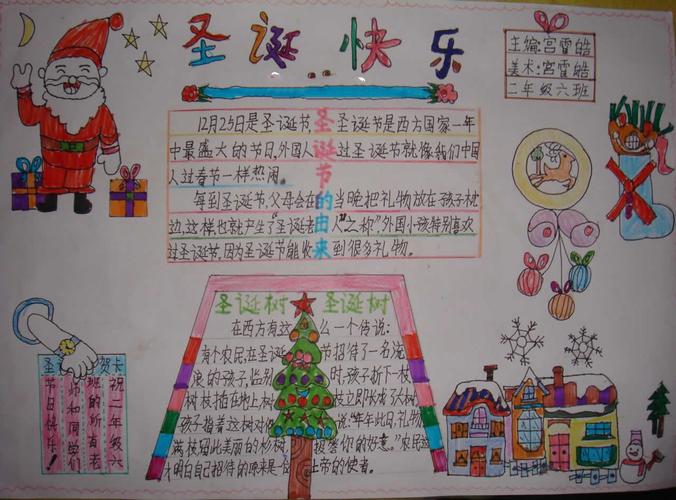 圣诞快乐
主编:宫霄皓
美术:宫霄皓
二年级六班
圣诞节的由来
12月25日是圣诞节,圣诞节是西方国家一年
中最盛大的节日,外国人过圣诞节就像我们中国
人过春节一样热闹。
每到圣诞节,父母会在当晚把礼物放在孩子枕
边,这样也就产生了“圣诞老人”之称”外国小孩特别喜欢
过圣诞节,因为圣诞节能收到很多礼物。
圣诞树 圣诞树
在西方有这么一个传说:
有个农民,在圣诞节招待了一名流
浪的孩子,临别时,孩子折下一枝
树枝插在地上树枝立即长成
孩子指着这树对说:“年年此日,礼物
满枝留此美丽的杉树,报答你的好意。”农民这
才明白自己招待的原来是位上帝的使者。
圣 贺卡
祝二年级六
班的所有老
师和同学们
节日快乐!